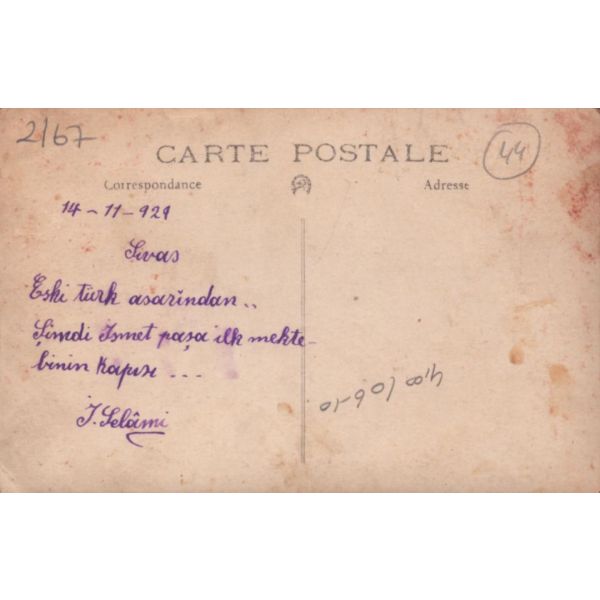 2/67
44
CARTE POSTALE
Correspondance
Adresse
14-11-929
Sivas
Eski türk asarından..
Şimdi Ismet paşa ilk mekte-
binin kapısı ...
I. Selâmi